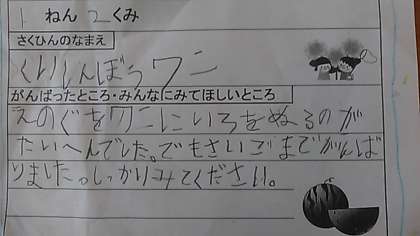 1 ねん 2 くみ
さくひんのなまえ
くいしんぼうワニ
がんばったところ・みんなにみてほしいところ
えのぐをワニにいろをぬるのが
たいへんでした。でもさいごまでがんば
りました。しっかりみてください。